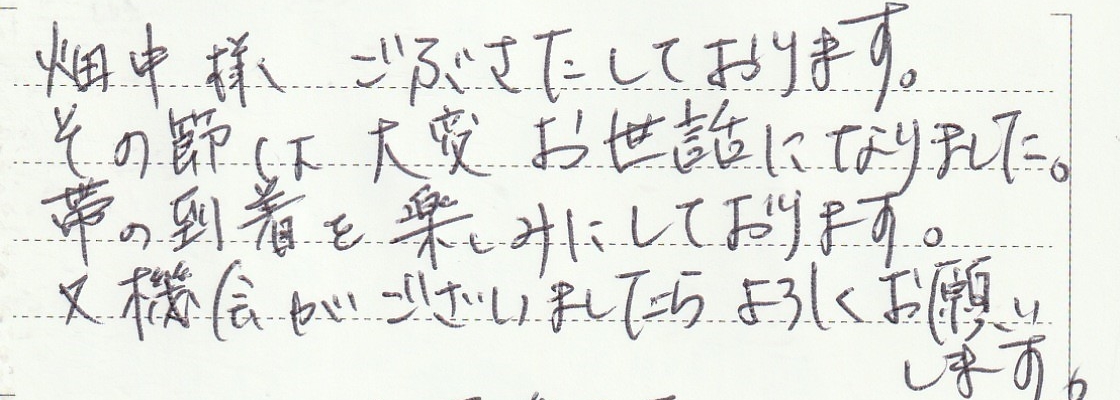 畑中様 ごぶさたしております。
その節は大変お世話になりました。
帯の到着を楽しみにしております。
又機会がございましたらよろしくお願い
します。